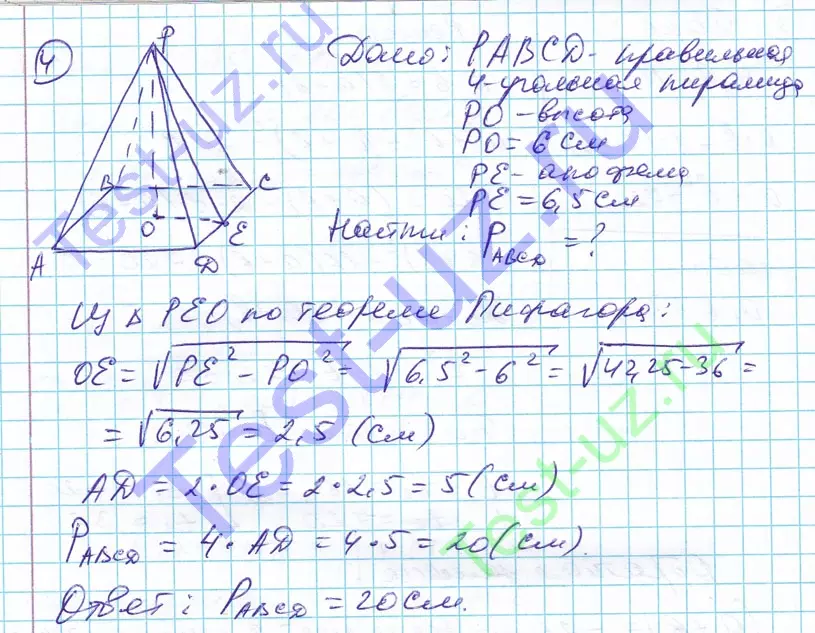 4 Дано: PABCD - правильная
4-угольная пирамида
PO - высота
PO = 6 см
PE - апофема
PE = 6,5 см
Найти: P_ABCD = ?
P
B C
O E
A D
Из Δ PEO по теореме Пифагора:
OE = √(PE² - PO²) = √(6,5² - 6²) = √(42,25 - 36) =
= √6,25 = 2,5 (см)
AD = 2 · OE = 2 · 2,5 = 5 (см)
P_ABCD = 4 · AD = 4 · 5 = 20 (см).
Ответ: P_ABCD = 20 см.
Test-uz.ru
Test-uz.ru
Test-uz.ru